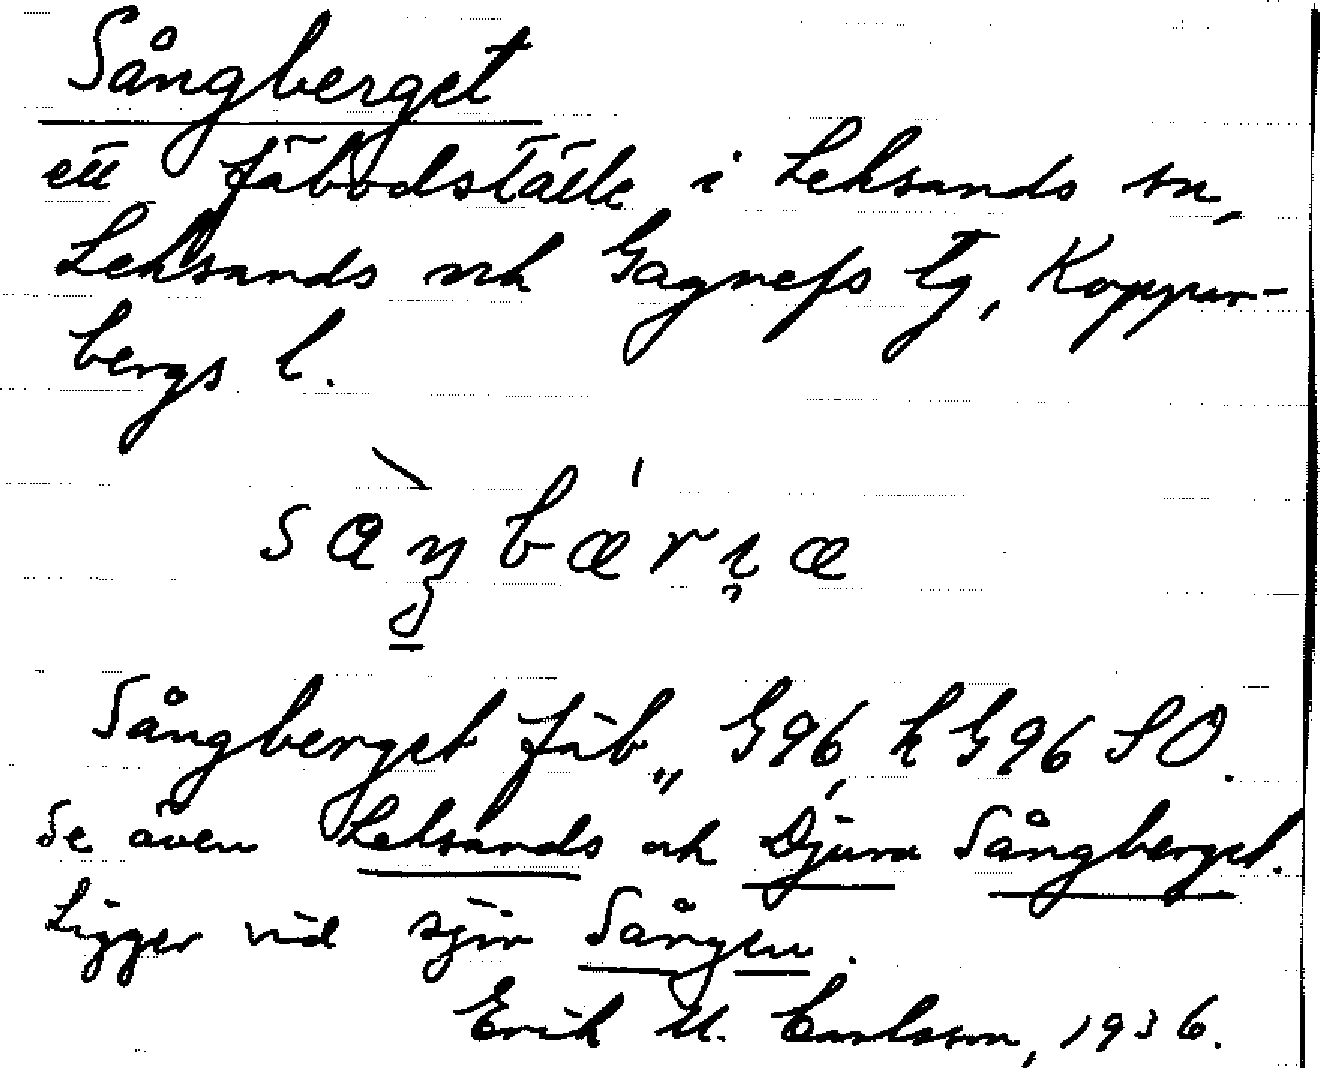 Sångberget
ett fäbodställe i Leksands sn,
Leksands och Gagnefs tg, Koppar-
bergs l.
Sångberget fäb., G96, k G96 SO.
Se även Leksands och Djura Sångberget.
Ligger vid sjön Sången.
Erik M. Carlsson, 1936.